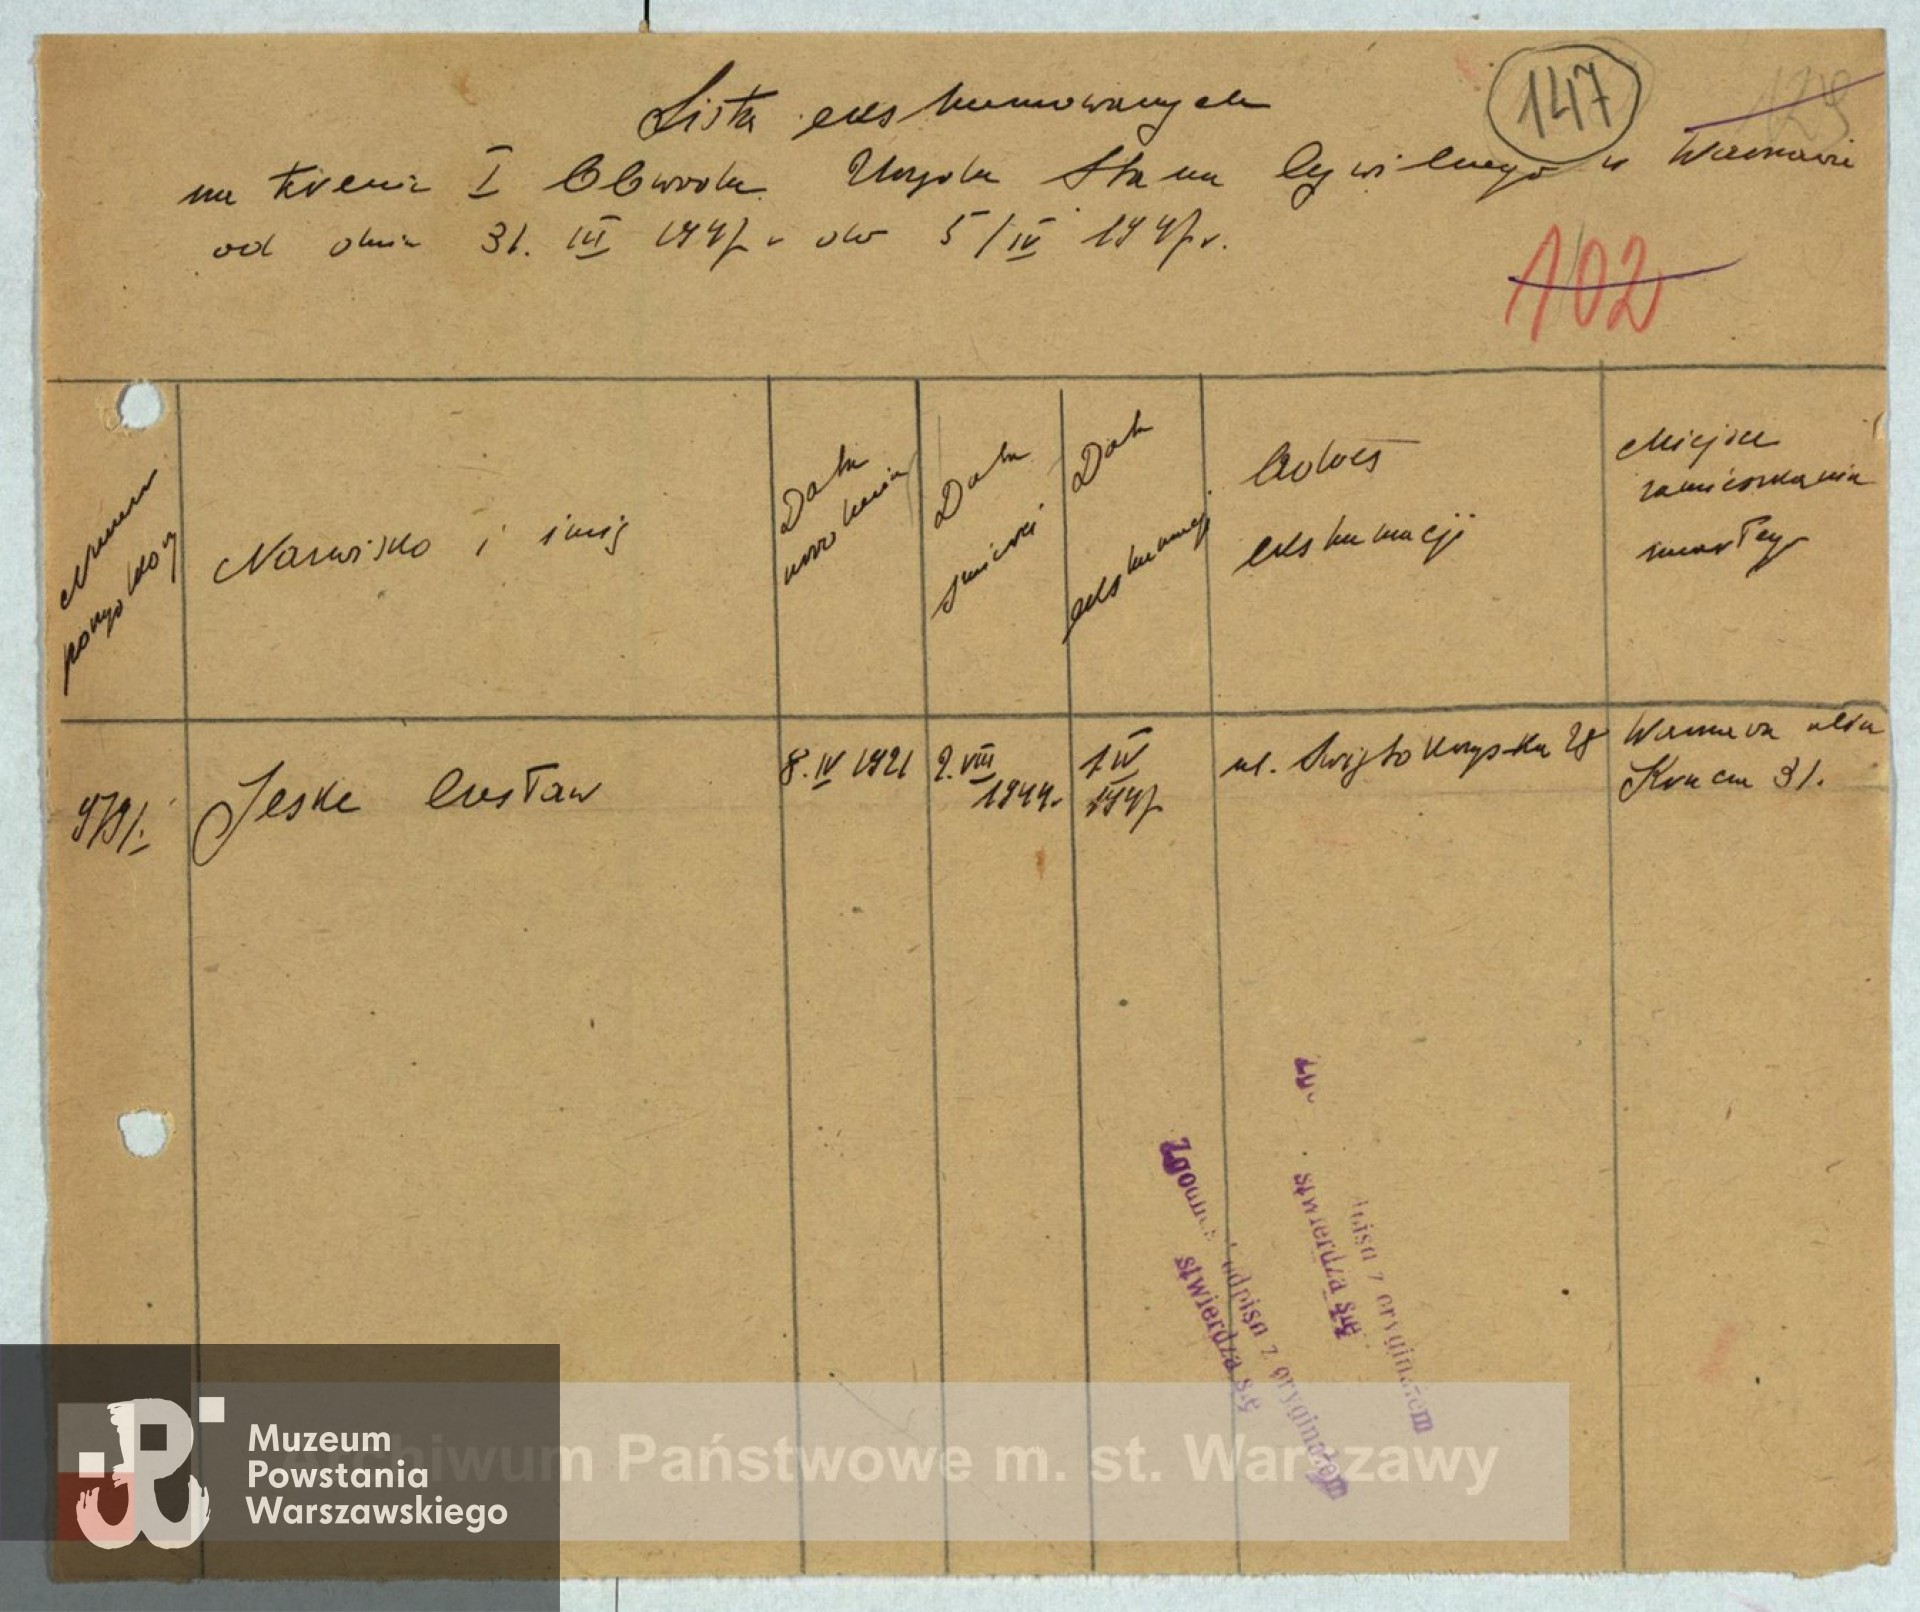 147
129
Lista ekshumowanych
na terenie I Obwodu Urzędu Stanu Cywilnego w Warszawie
od dnia 31. III 1947 r do 5/IV 1947 r.
102
Numer porządkowy
Nazwisko i imię
Data urodzenia
Data śmierci
Data ekshumacji
Adres ekshumacji
Miejsce zamieszkania zmarłego
979/I.
Jeske Gustaw
8. IV 1921
2. VIII 1944 r
1 IV 1947
ul. Świętokrzyska 28
Warszawa ulica Krucza 31.
Zgodność odpisu z oryginałem
stwierdza się
odpisu z oryginałem
stwierdza się
Muzeum
Powstania
Warszawskiego
Archiwum Państwowe m. st. Warszawy